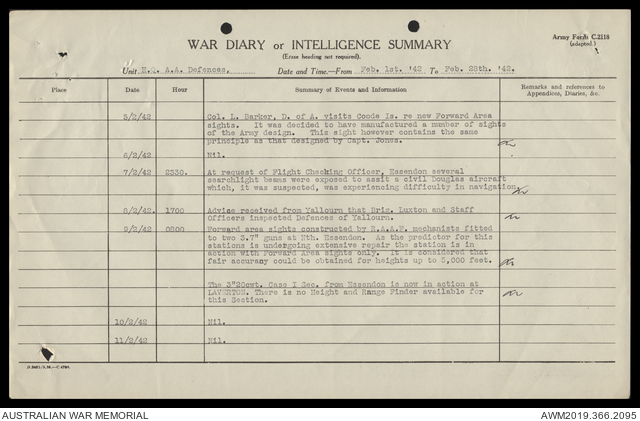 Army Form C.2118
(adapted.)
WAR DIARY or INTELLIGENCE SUMMARY
(Erase heading not required).
Unit H.Q. A.A. Defences. Date and Time.—From Feb. 1st. '42 To Feb. 28th. '42.
Place Date Hour Summary of Events and Information Remarks and references to
Appendices, Diaries, &c.
5/2/42 Col. L. Barker, D. of A. visits Coode Is. re new Forward Area
sights. It was decided to have manufactured a number of sights
of the Army design. This sight however contains the same
principle as that designed by Capt. Jones.
6/2/42 Nil.
7/2/42 2330. At request of Flight Checking Officer, Essendon several
searchlight beams were exposed to assit a civil Douglas aircraft
which, it was suspected, was experiencing difficulty in navigation.
8/2/42. 1700 Advice received from Yallourn that Brig. Luxton and Staff
Officers inspected Defences of Yallourn.
9/2/42 0800 Forward area sights constructed by R.A.A.F. mechanists fitted
to two 3.7" guns at Nth. Essendon. As the predictor for this
stations is undergoing extensive repair the station is in
action with Forward Area sights only. It is considered that
fair accuracy could be obtained for heights up to 5,000 feet.
The 3"20cwt. Case I Sec. from Essendon is now in action at
LAVERTON. There is no Height and Range Finder available for
this Section.
10/2/42 Nil.
11/2/42 Nil.
AUSTRALIAN WAR MEMORIAL AWM2019.366.2095